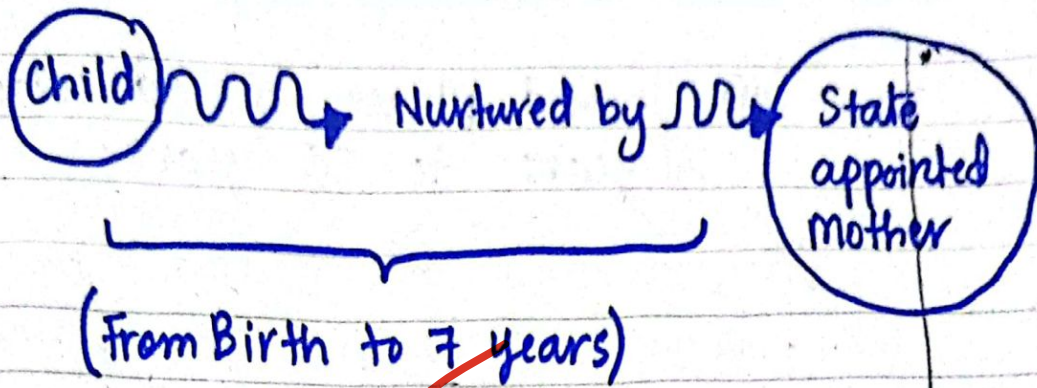 Child
Nurtured by
State
appointed
Mother
(From Birth to 7 years)